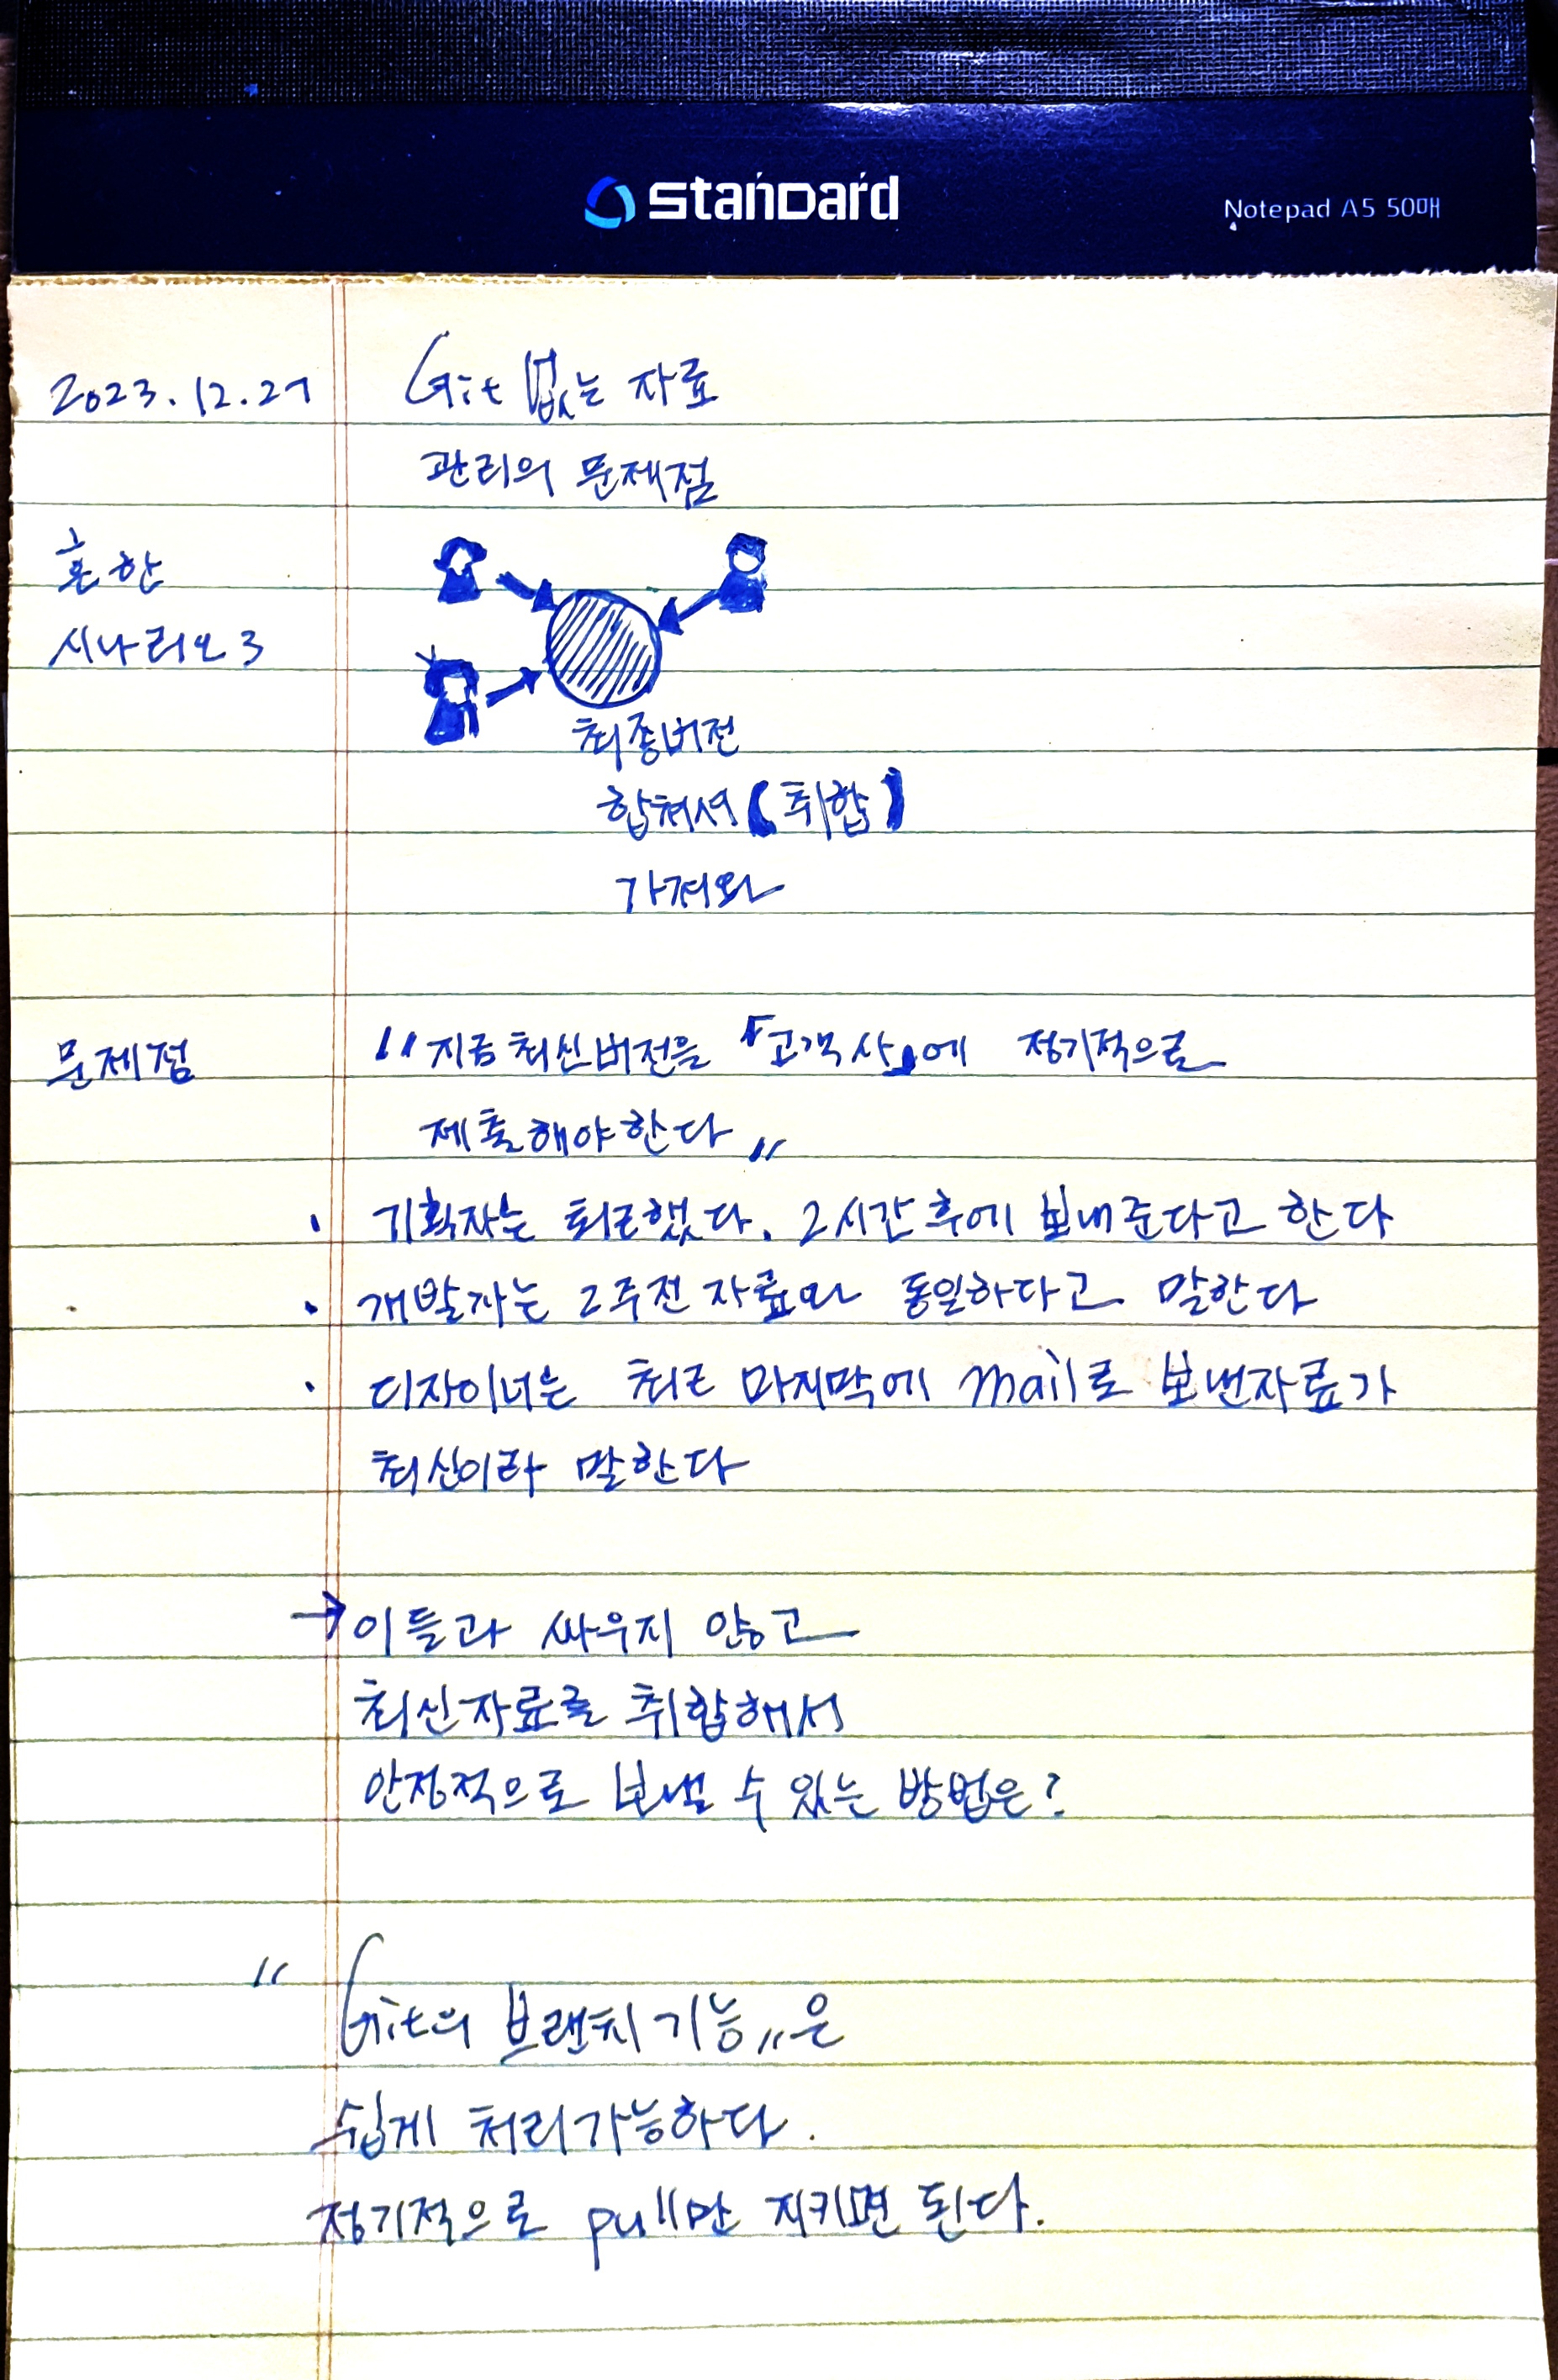 standard
Notepad A5 50매
2023.12.27
Git 없는 자료
관리의 문제점
흔한
시나리오 3
최종버전
합쳐서 (취합)
가져와
문제점
"지금 최신버전을 「고객사」에 정기적으로
제출해야한다"
· 기획자는 퇴근했다. 2시간 후에 보내준다고 한다
· 개발자는 2주전 자료와 동일하다고 말한다
· 디자이너는 최근 마지막에 mail로 보낸자료가
최신이라 말한다
→ 이들과 싸우지 않고
최신자료를 취합해서
안정적으로 보낼 수 있는 방법은?
"Git의 브랜치 기능"은
쉽게 처리가능하다.
정기적으로 pull만 지키면 된다.